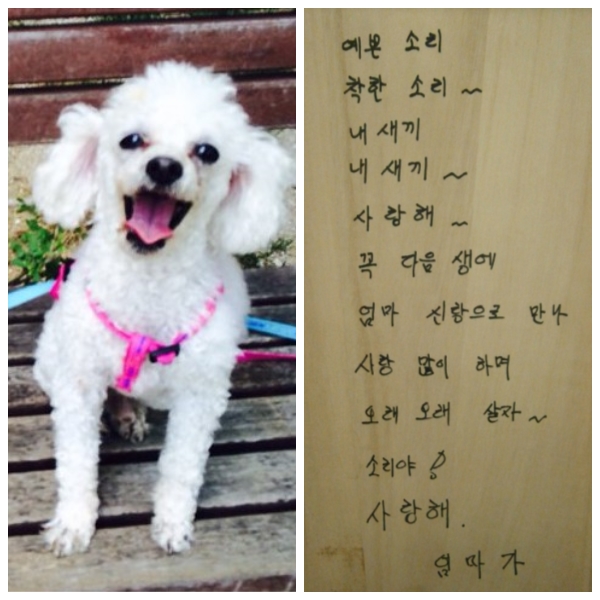 예쁜 소리
착한 소리~
내 새끼
내 새끼~
사랑해~
꼭 다음 생에
엄마 신랑으로 만나
사랑 많이 하며
오래 오래 살자~
소리야!
사랑해.
엄마가